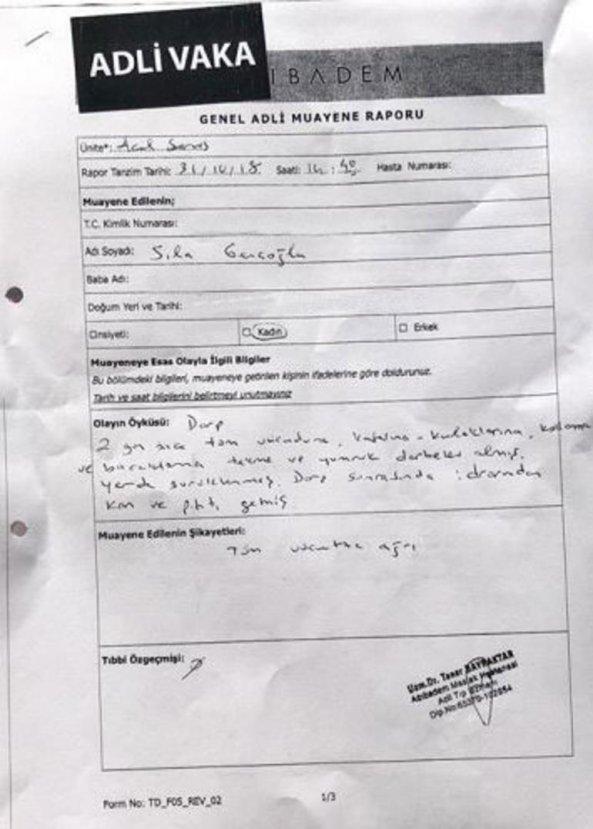 ADLİ VAKA
IBADEM
GENEL ADLİ MUAYENE RAPORU
Ünite*: Acil Servis
Rapor Tanzim Tarihi: 31/10/18 Saati: 16:40 Hasta Numarası:
Muayene Edilenin;
T.C. Kimlik Numarası:
Adı Soyadı: Sıla Gençoğlu
Baba Adı:
Doğum Yeri ve Tarihi:
Cinsiyeti: Kadın Erkek
Muayeneye Esas Olayla İlgili Bilgiler
Bu bölümdeki bilgileri, muayeneye getirilen kişinin ifadelerine göre doldurunuz.
Tarih ve saat bilgilerini belirtmeyi unutmayınız
Olayın Öyküsü: Darp
2 gün önce tüm vücuduna, kafasına, kulaklarına, kollarına
ve bacaklarına tekme ve yumruk darbeleri almış,
yerde sürüklenmiş. Darp sonrasında idrarından
kan ve pıhtı gelmiş
Muayene Edilenin Şikayetleri:
Tüm vücutta ağrı
Tıbbi Özgeçmişi:
Uzm.Dr. Taner BAYRAKTAR
Acıbadem Maslak Hastanesi
Adli Tıp Uzmanı
Form No: TD_F05_REV_02
1/3